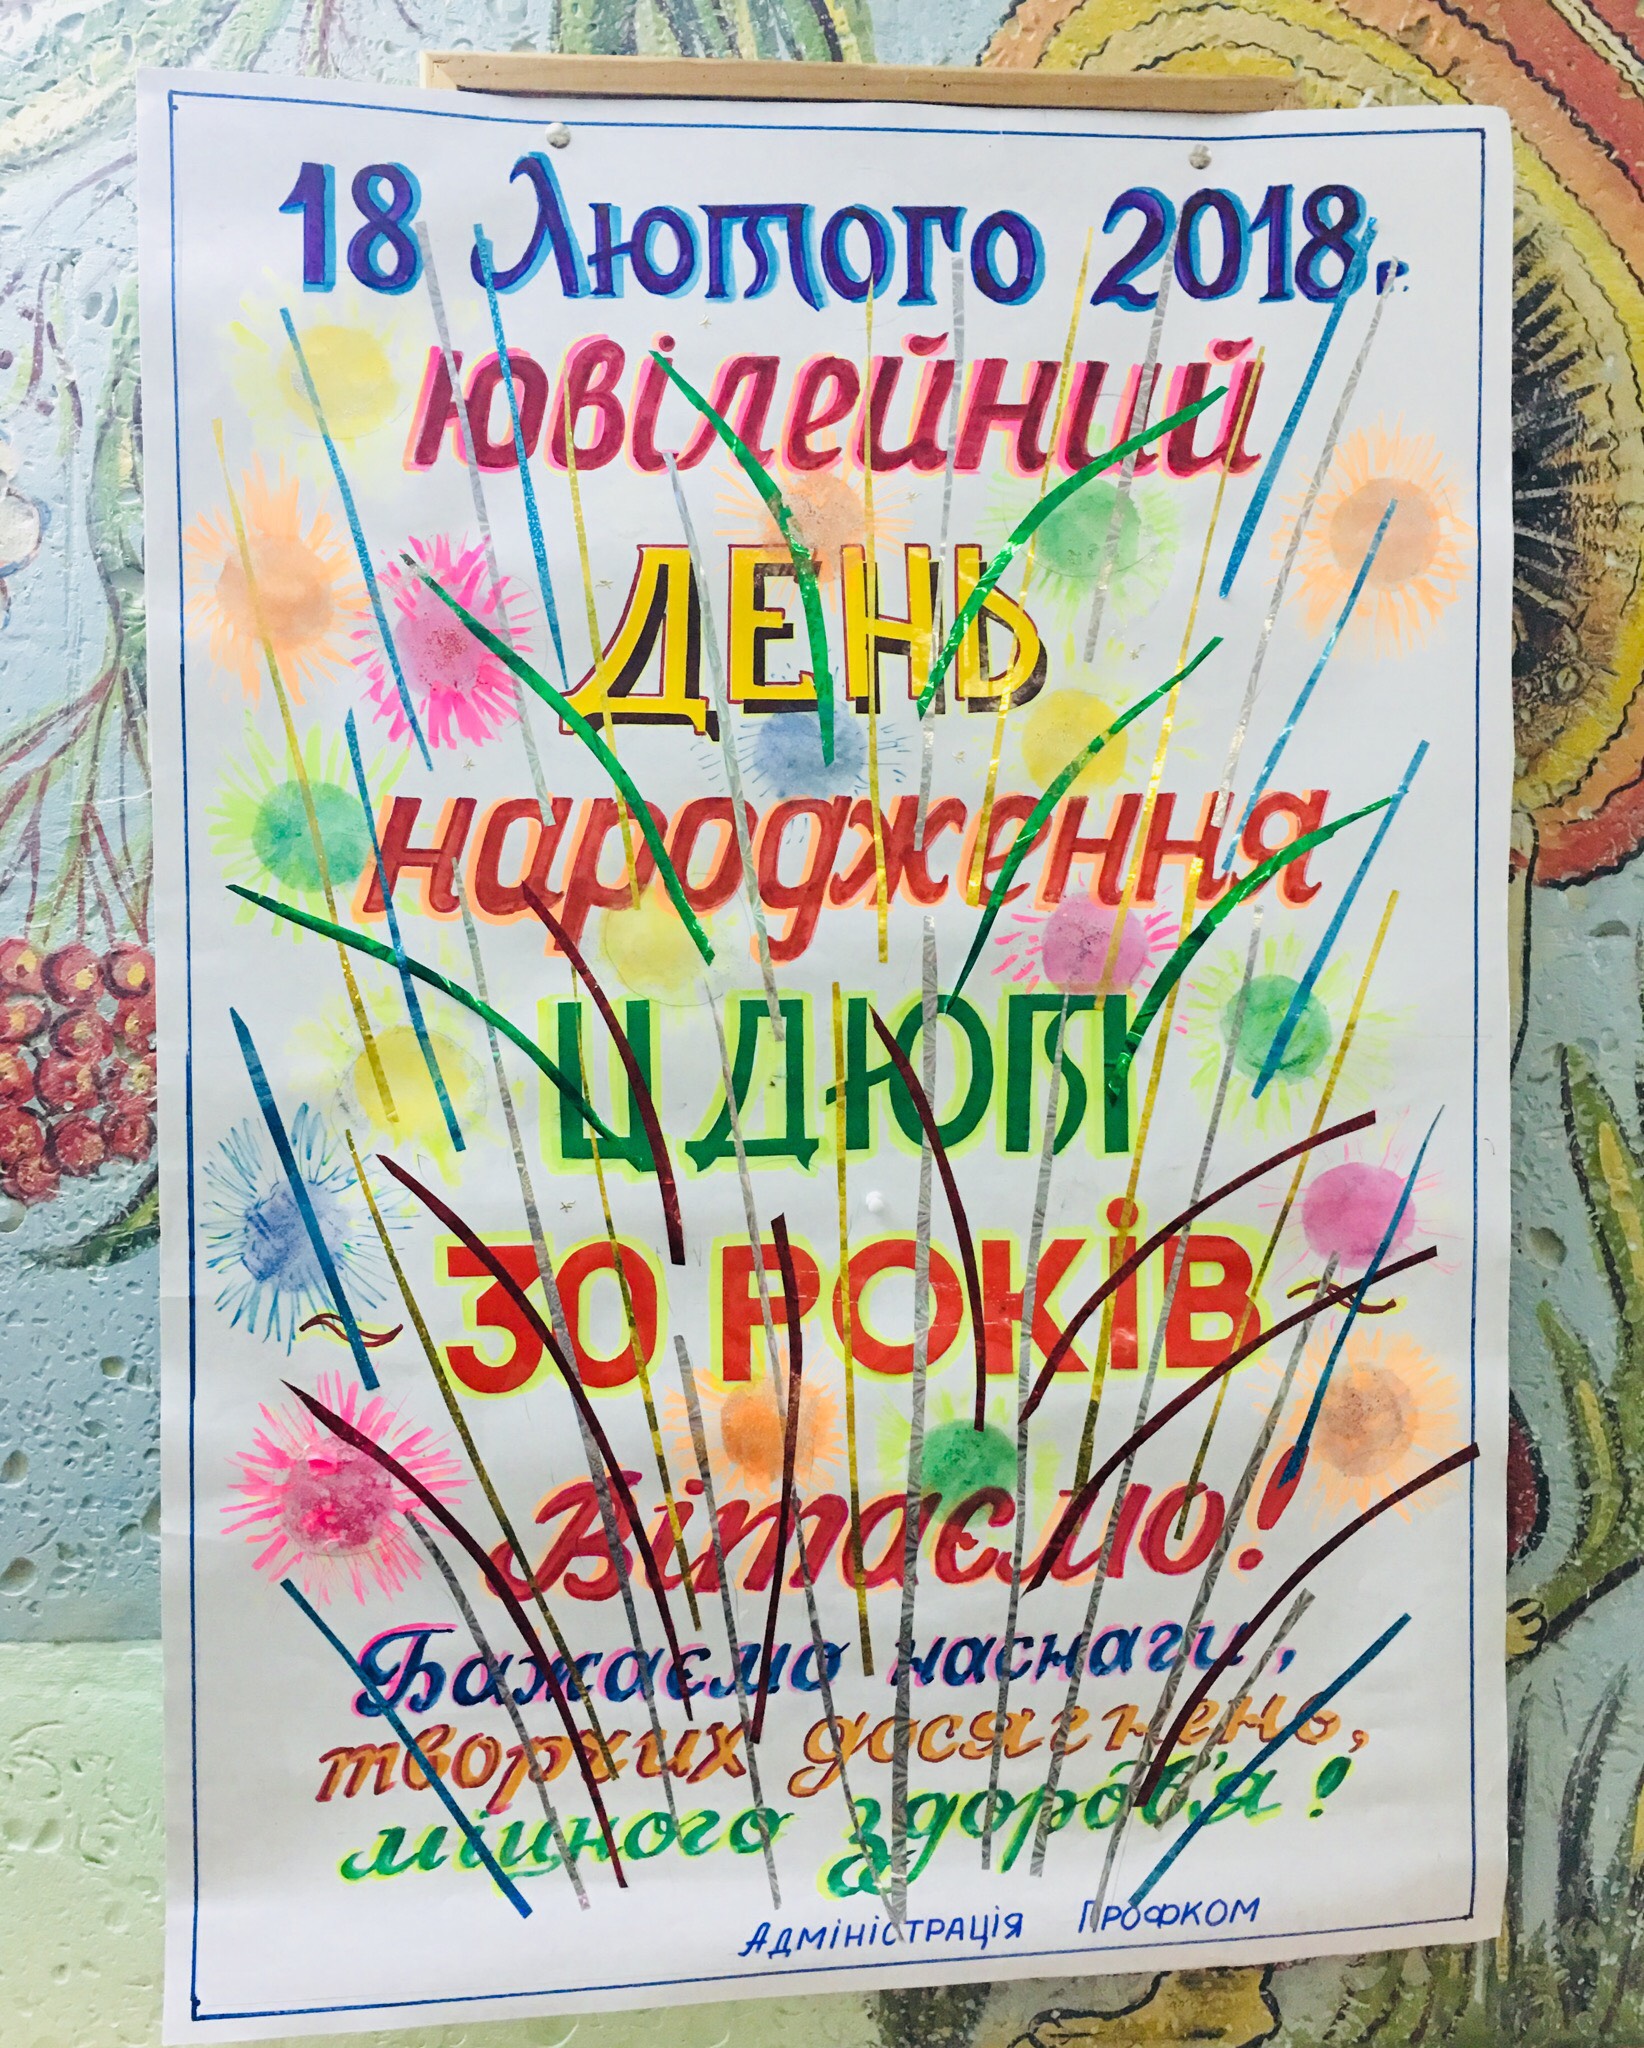 18 Лютого 2018 г.
ювілейний
ДЕНЬ
народження
ЦДЮТ
30 РОКІВ
Вітаємо!
Бажаємо наснаги,
творчих досягнень,
міцного здоров'я!
Адміністрація Профком